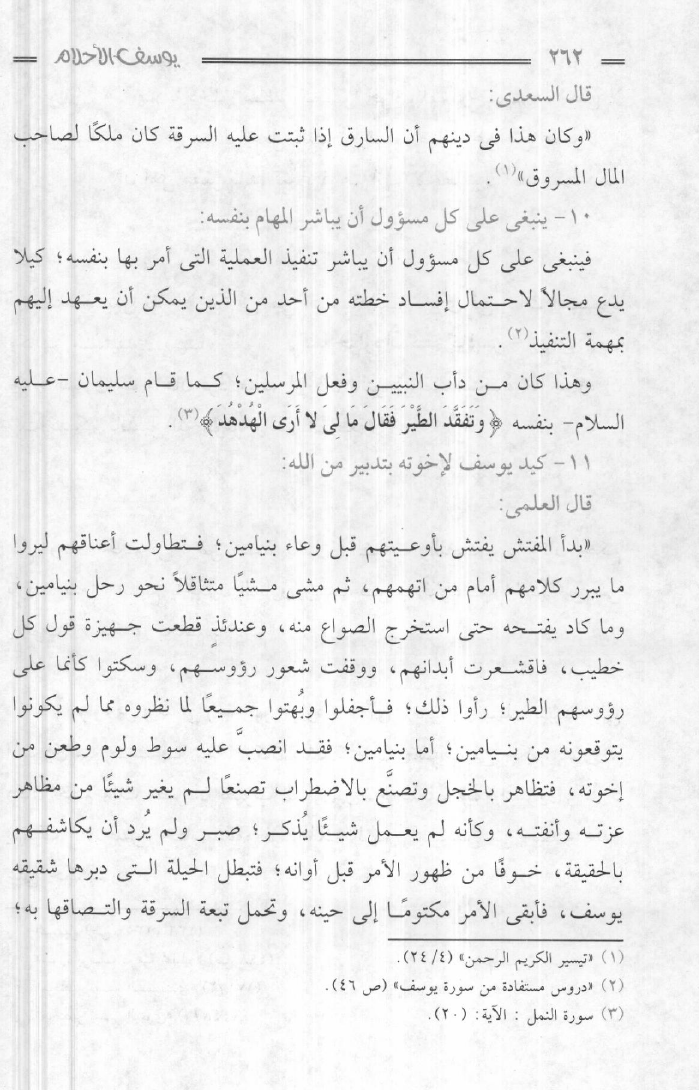 ٢٦٢
يوسف الأحلام
قال السعدى:
«وكان هذا فى دينهم أن السارق إذا ثبتت عليه السرقة كان ملكًا لصاحب
المال المسروق»(١).
١٠- ينبغى على كل مسؤول أن يباشر المهام بنفسه:
فينبغى على كل مسؤول أن يباشر تنفيذ العملية التى أمر بها بنفسه؛ كيلا
يدع مجالاً لاحتمال إفساد خطته من أحد من الذين يمكن أن يعهد إليهم
بمهمة التنفيذ(٢).
وهذا كان من دأب النبيين وفعل المرسلين؛ كما قام سليمان -عليه
السلام- بنفسه ﴿وَتَفَقَّدَ الطَّيْرَ فَقَالَ مَا لِىَ لا أَرَى الْهُدْهُدَ﴾(٣).
١١- كيد يوسف لإخوته بتدبير من الله:
قال العلمى:
«بدأ المفتش يفتش بأوعيتهم قبل وعاء بنيامين؛ فتطاولت أعناقهم ليروا
ما يبرر كلامهم أمام من اتهمهم، ثم مشى مشيًا متثاقلاً نحو رحل بنيامين،
وما كاد يفتحه حتى استخرج الصواع منه، وعندئذٍ قطعت جهيزة قول كل
خطيب، فاقشعرت أبدانهم، ووقفت شعور رؤوسهم، وسكتوا كأنما على
رؤوسهم الطير؛ رأوا ذلك؛ فأجفلوا وبُهتوا جميعًا لما نظروه مما لم يكونوا
يتوقعونه من بنيامين؛ أما بنيامين؛ فقد انصبَّ عليه سوط ولوم وطعن من
إخوته، فتظاهر بالخجل وتصنَّع بالاضطراب تصنعًا لم يغير شيئًا من مظاهر
عزته وأنفته، وكأنه لم يعمل شيئًا يُذكر؛ صبر ولم يُرد أن يكاشفهم
بالحقيقة، خوفًا من ظهور الأمر قبل أوانه؛ فتبطل الحيلة التى دبرها شقيقه
يوسف، فأبقى الأمر مكتومًا إلى حينه، وتحمل تبعة السرقة والتصاقها به؛
(١) «تيسير الكريم الرحمن» (٢٤/٤).
(٢) «دروس مستفادة من سورة يوسف» (ص ٤٦).
(٣) سورة النمل : الآية: (٢٠).